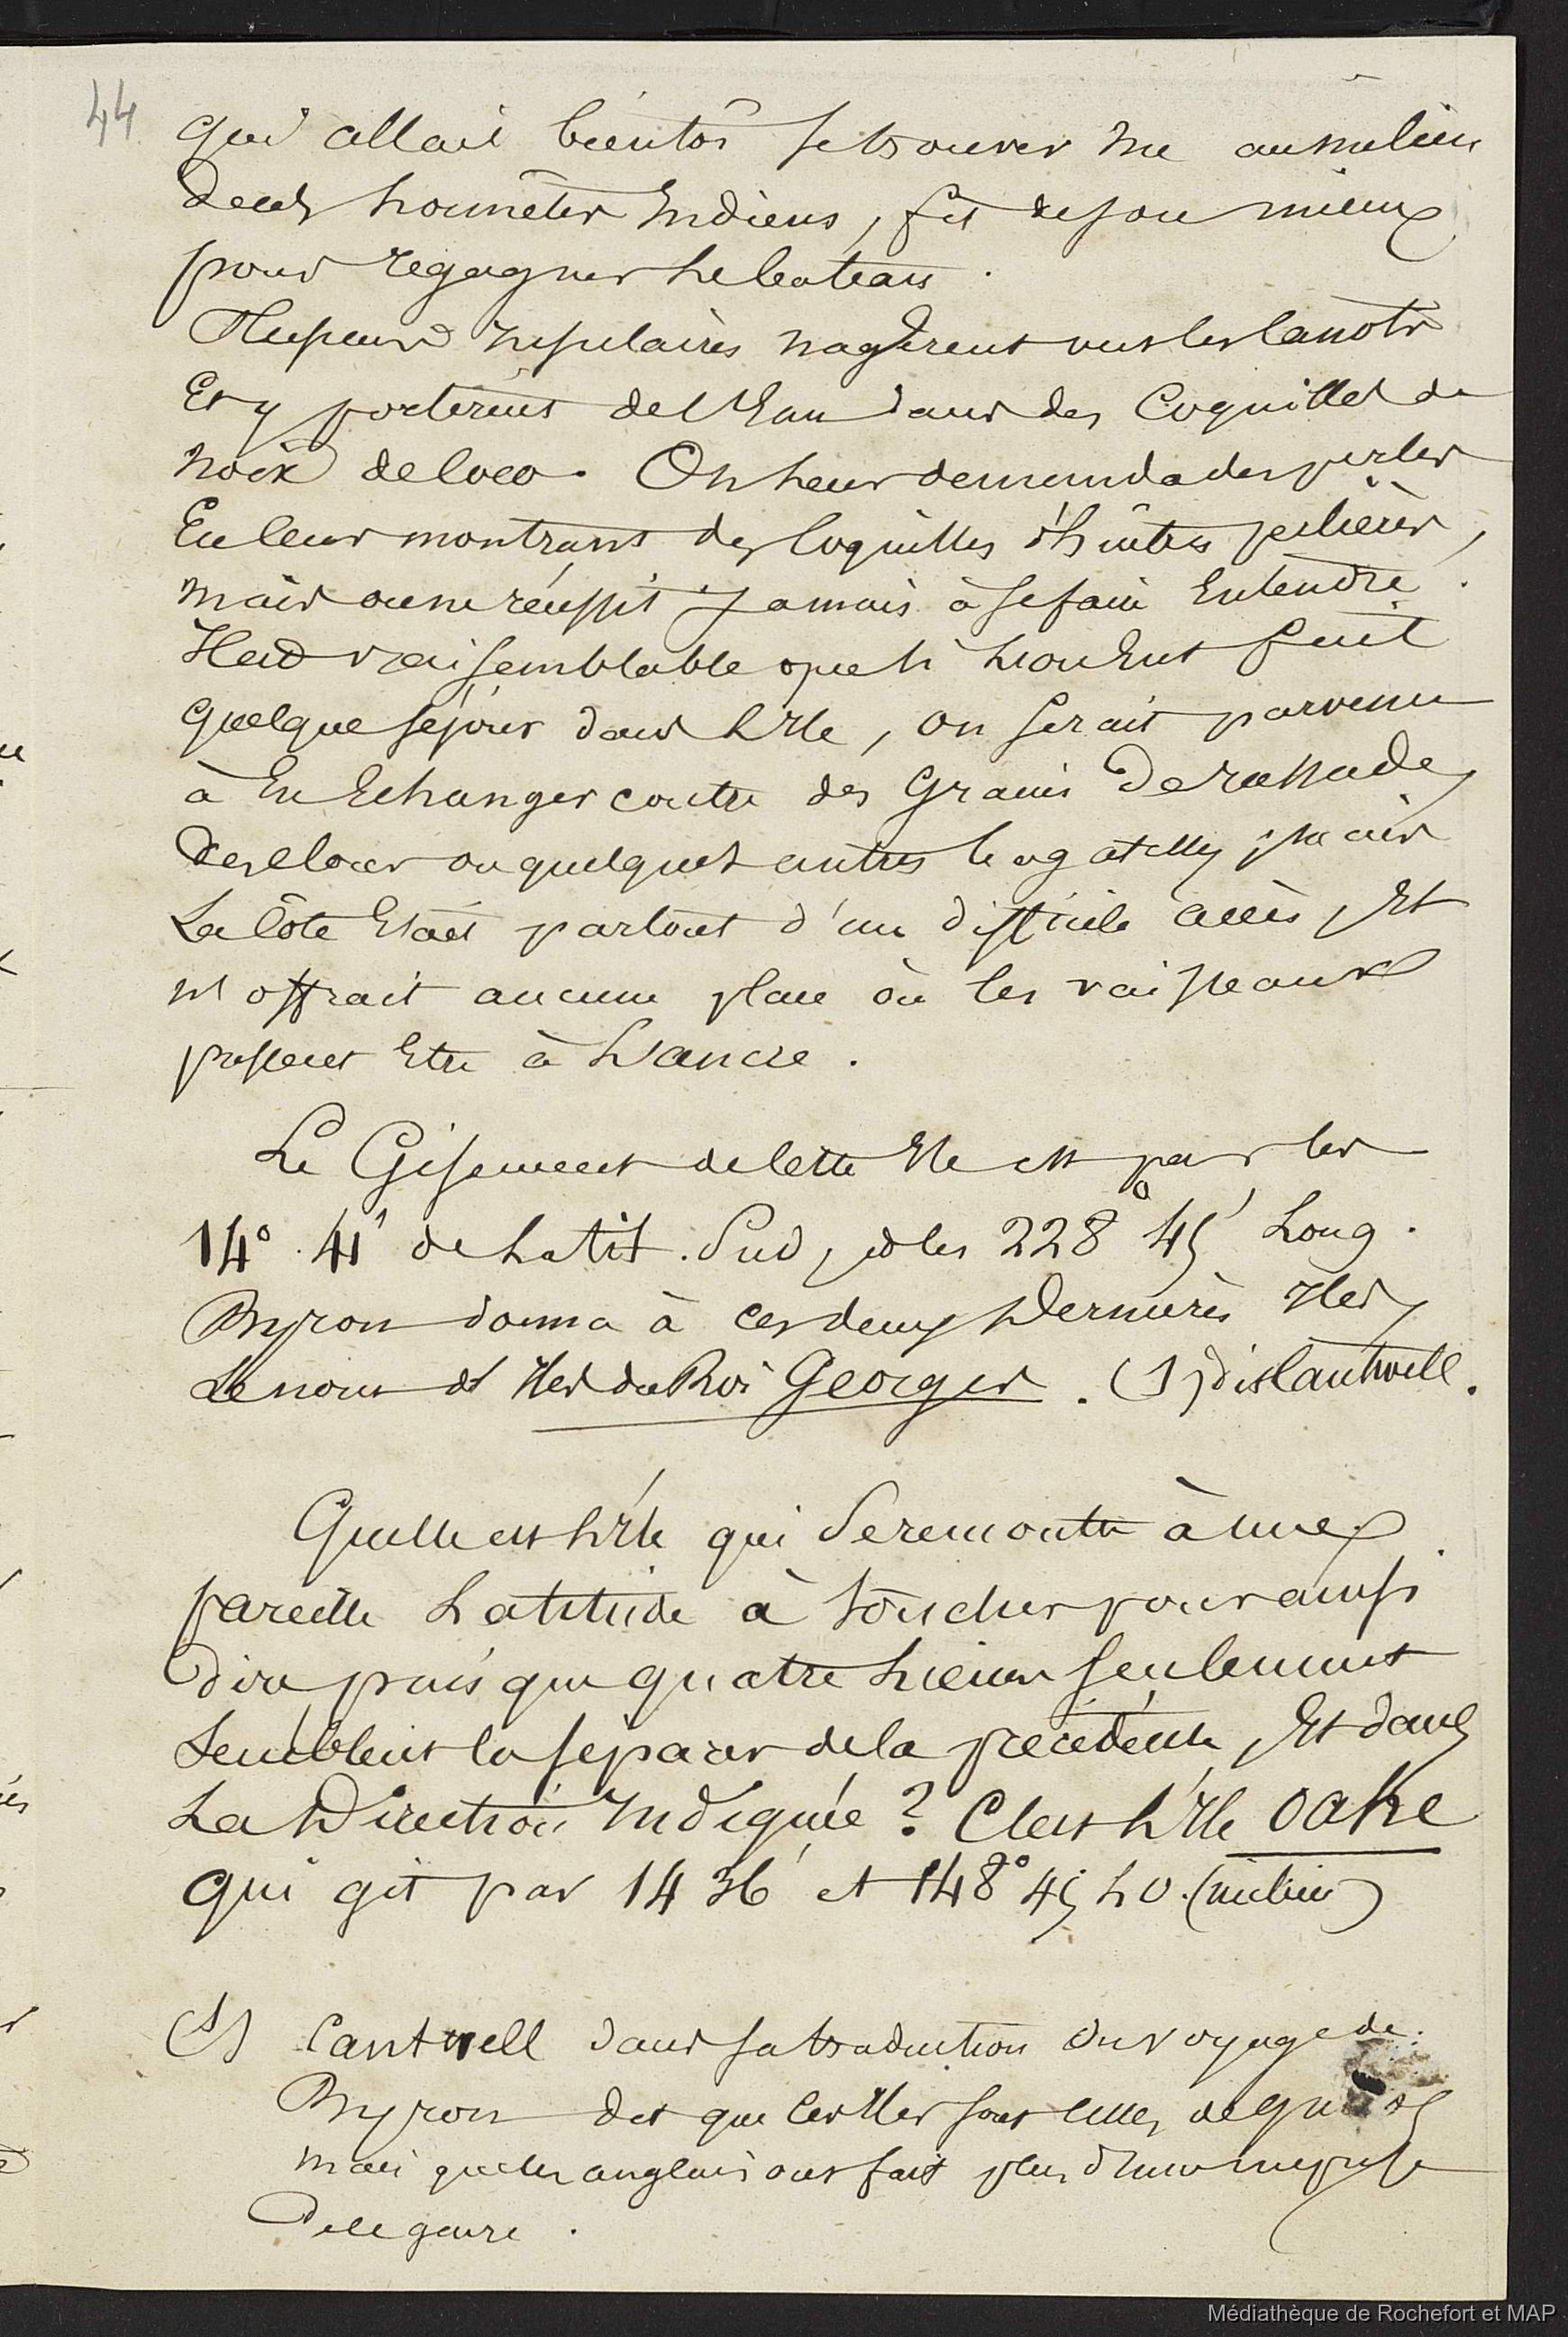 44
qui allait bientôt se trouver nu au milieu
de ces honnêtes Indiens, fit de son mieux
pour regagner le bateau.
Plusieurs insulaires nagèrent vers les Canots
Et y portèrent de l'Eau dans des Coquilles de
noix de Coco. On leur demanda des perles
En leur montrant des Coquilles d'huîtres perlières,
mais on ne réussit jamais à se faire Entendre.
Il est vraisemblable que si l'on Eut fait
quelque séjour dans l'Ile, on serait parvenu
à En Echanger contre des Grains de rassade,
des clous ou quelques autres bagatelles, mais
La Côte Etait partout d'un difficile accès, Et
n'offrait aucune place où les vaisseaux
pussent Etre à L'ancre.
Le Gisement de cette Ile est par les
14° 41' de Latit. Sud, et les 228° 45' Long.
Byron donna à ces deux Dernières Iles,
Le nom d'Iles du Roi Georges. (1) dit Cantwell.
Quelle est l'Ile qui se remontre à une
pareille Latitude à toucher pour ainsi
dire puisque quatre lieues seulement
Semblent la séparer de la précédente, Et dans
La Direction Indiquée ? C'est l'Ile Oahe
qui git par 14 36' et 148° 45 LO. (milieu)
(1) Cantwell dans sa traduction du voyage de
Byron dit que ces Iles sont celles de
mais que les anglais ont fait plus d'une méprise
de ce genre.
Médiathèque de Rochefort et MAP